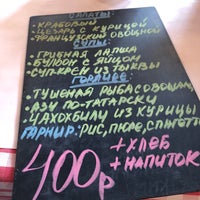 САЛАТЫ:
• КРАБОВЫЙ
• ЦЕЗАРЬ С КУРИЦОЙ
• ФРАНЦУЗСКИЙ ОВОЩНОЙ
СУПЫ:
• ГРИБНАЯ ЛАПША
• БУЛЬОН С ЯЙЦОМ
• СУП-КРЕМ ИЗ ТЫКВЫ
ГОРЯЧЕЕ:
• ТУШЕНАЯ РЫБА С ОВОЩАМИ
• АЗУ ПО-ТАТАРСКИ
• ЧАХОХБИЛИ ИЗ КУРИЦЫ
ГАРНИР: РИС, ПЮРЕ, СПАГЕТТИ
400р
+ ХЛЕБ
+ НАПИТОК